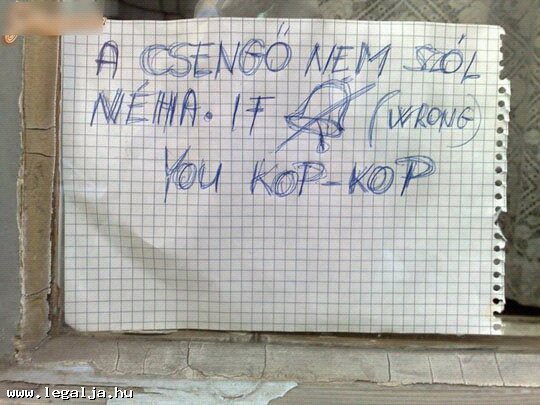 A CSENGŐ NEM SZÓL
NÉHA. IF (WRONG)
YOU KOP-KOP
www.legalja.hu